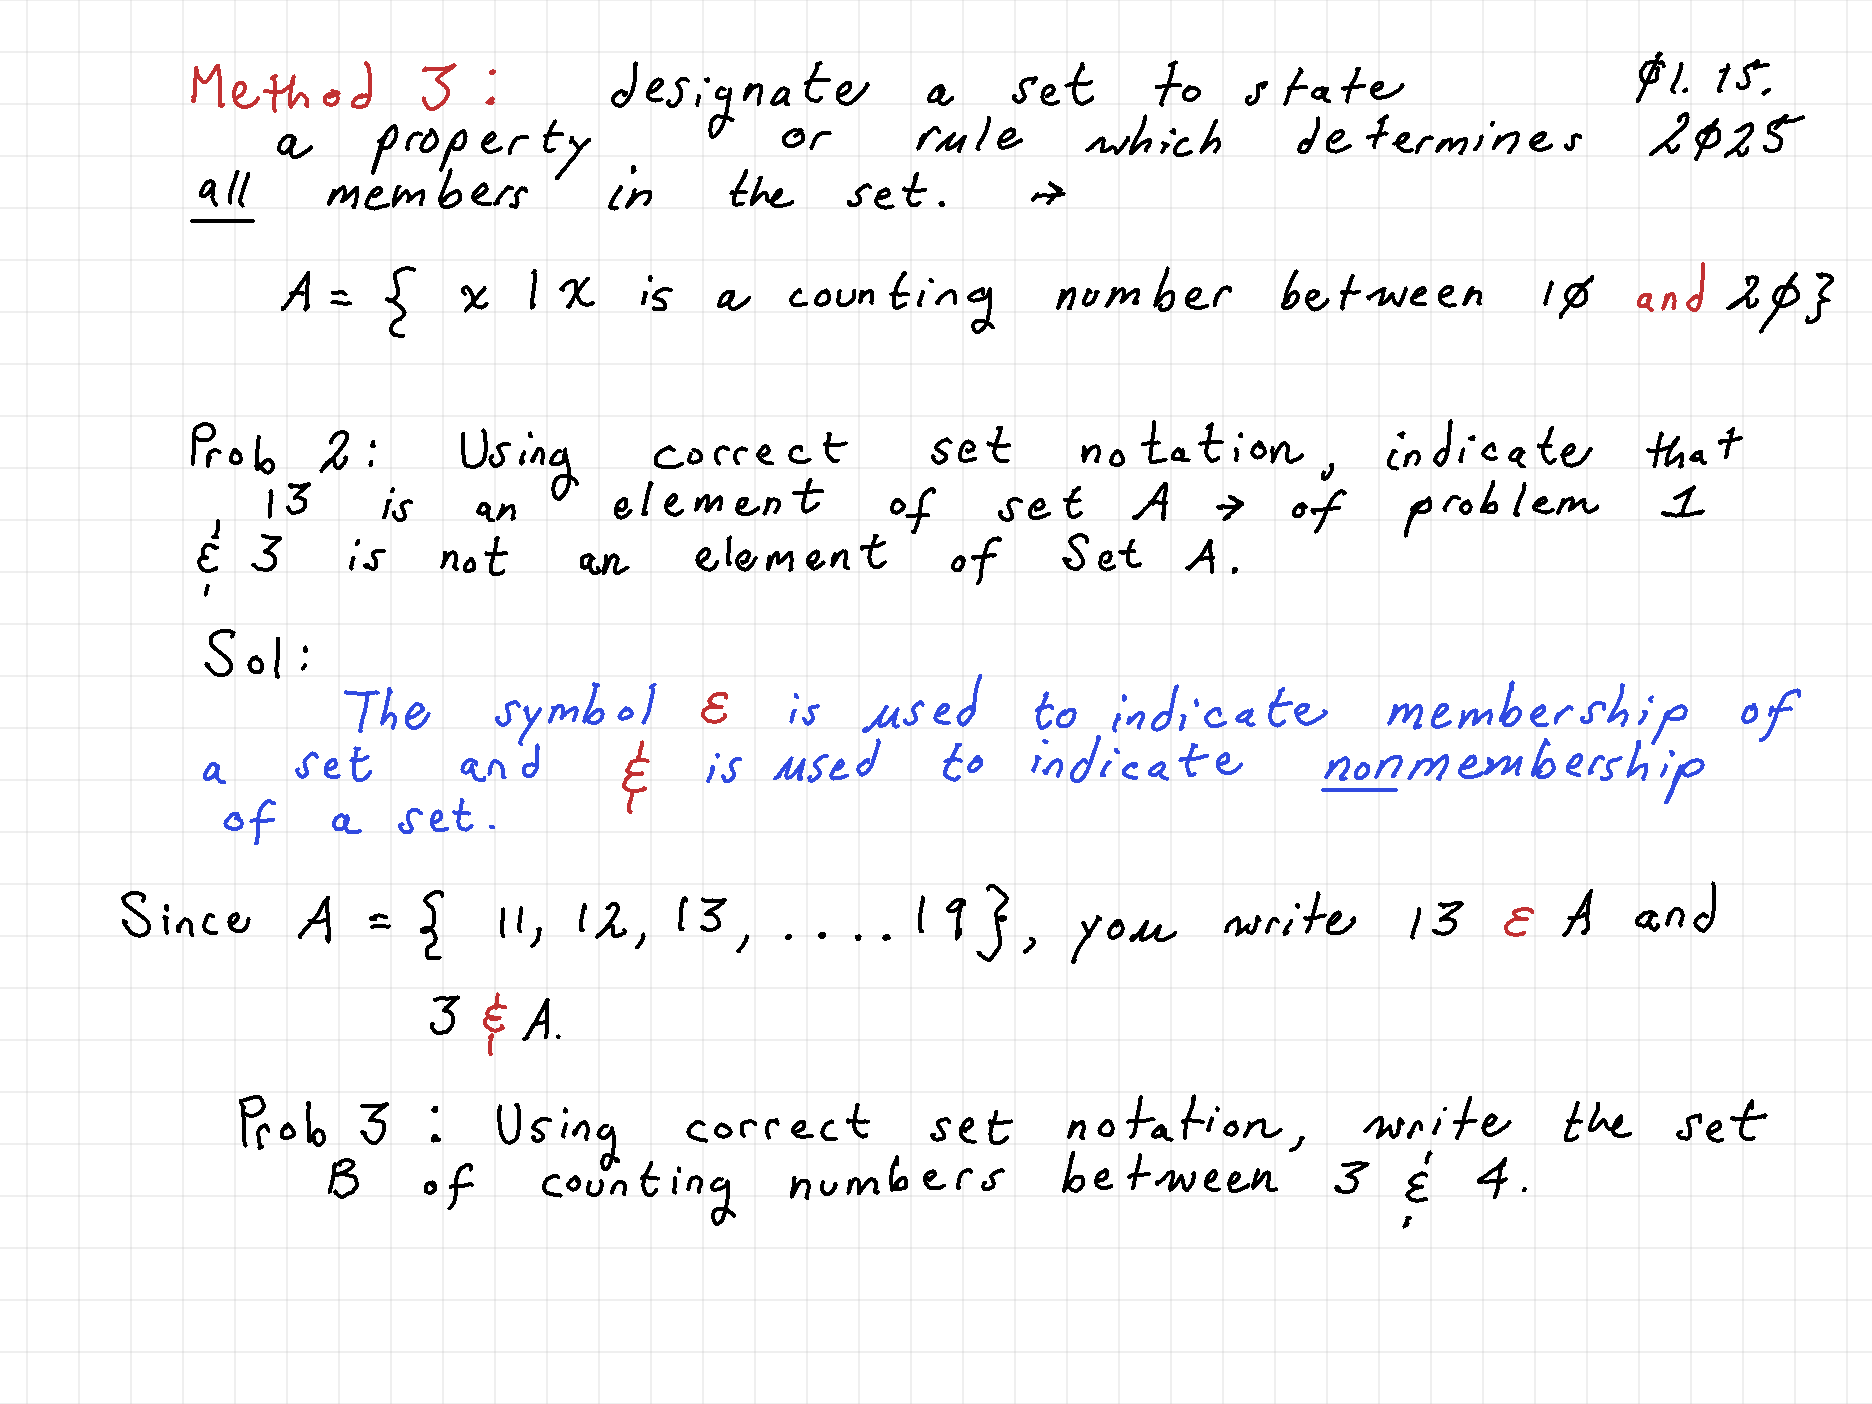 Method 3: designate a set to state ∅1. 15.
a property or rule which determines 2∅25
all members in the set. →
A = { x | x is a counting number between 1∅ and 2∅}
Prob 2: Using correct set notation, indicate that
13 is an element of set A → of problem 1
& 3 is not an element of Set A.
Sol:
The symbol ε is used to indicate membership of
a set and ∉ is used to indicate nonmembership
of a set.
Since A = { 11, 12, 13, .... 19}, you write 13 ε A and
3 ∉ A.
Prob 3 : Using correct set notation, write the set
B of counting numbers between 3 & 4.